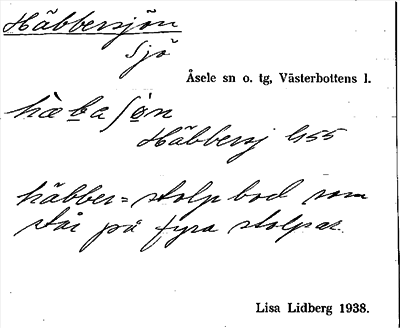 Häbbersjön
Sjö
Åsele sn o. tg, Västerbottens l.
hæ̀baʃø̀n
Häbbersj G55
häbber = stolpbod som
står på fyra stolpar.
Lisa Lidberg 1938.